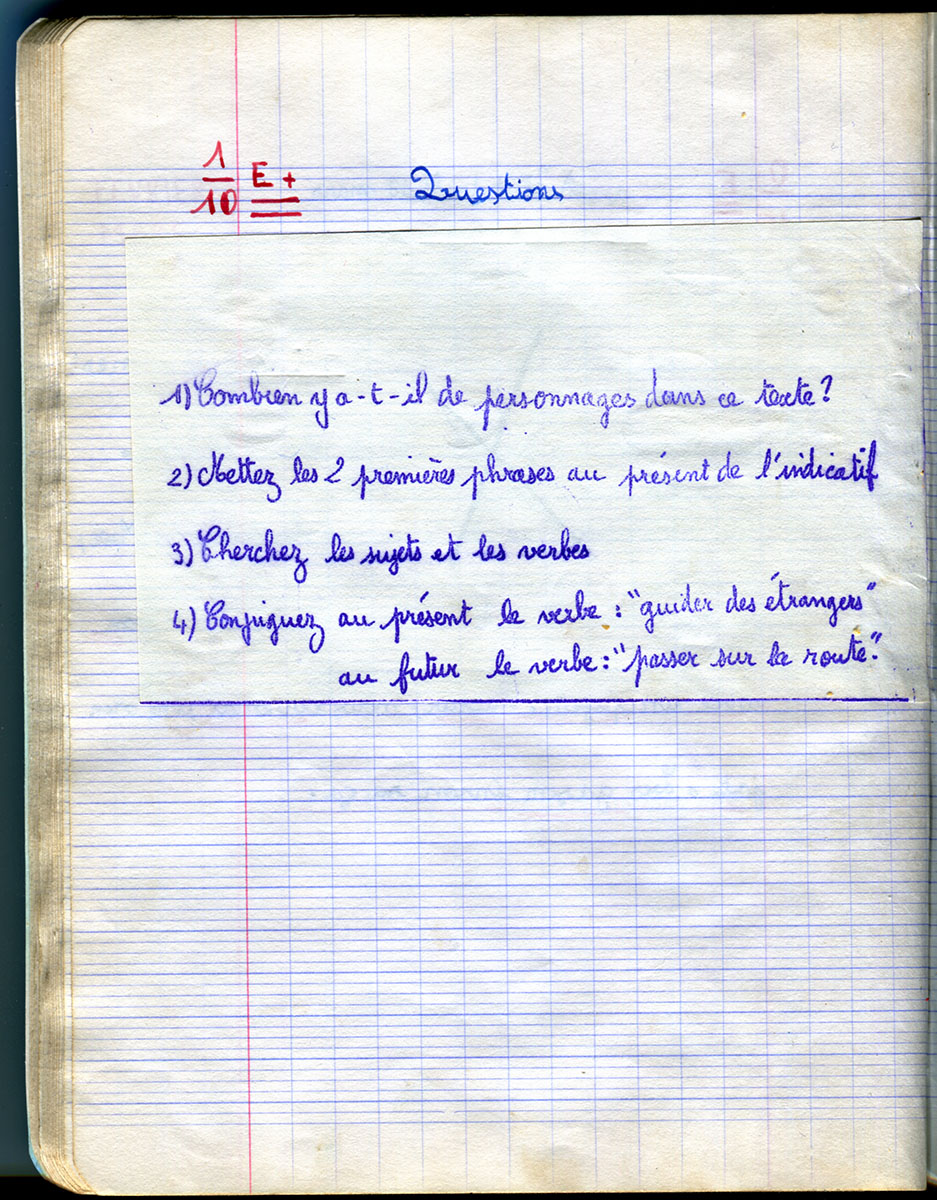 1/10 E+ Questions
1) Combien y a-t-il de personnages dans ce texte?
2) Mettez les 2 premières phrases au présent de l'indicatif
3) Cherchez les sujets et les verbes
4) Conjuguez au présent le verbe : "guider des étrangers"
au futur le verbe : "passer sur la route".